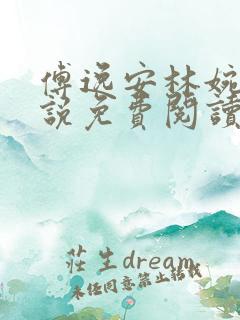 傅逸安林婉
說免費閱讀
莊生dream
未经同意禁止转载